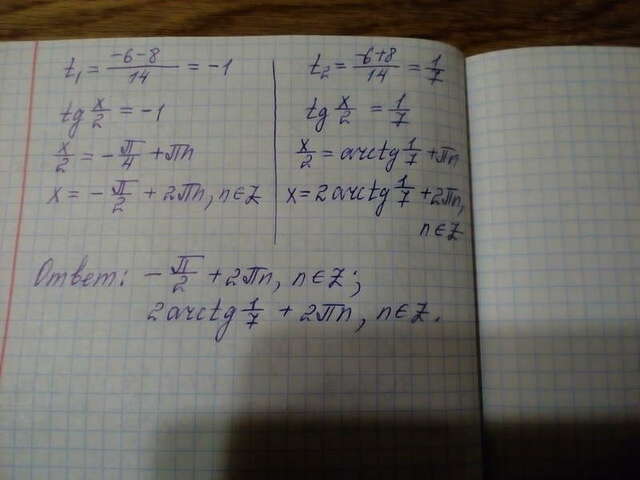 t₁ = (-6-8)/14 = -1
tg x/2 = -1
x/2 = -π/4 + πn
x = -π/2 + 2πn, n∈Z
t₂ = (-6+8)/14 = 1/7
tg x/2 = 1/7
x/2 = arctg 1/7 + πn
x = 2arctg 1/7 + 2πn,
n∈Z
Ответ: -π/2 + 2πn, n∈Z;
2arctg 1/7 + 2πn, n∈Z.